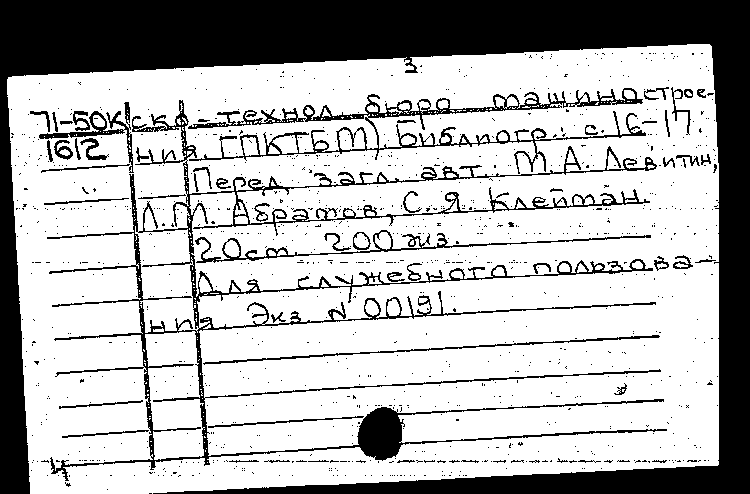 3.
71-50К ско-технол бюро машинострое-
1612 ния. (ПКТБМ). Библиогр.: с. 16-17.
Перед загл. авт.: М.А. Левитин,
Л.М. Абратов, С.Я. Клейман.
20см. 200экз.
Для служебного пользова-
ния. Экз. N 00191.
4